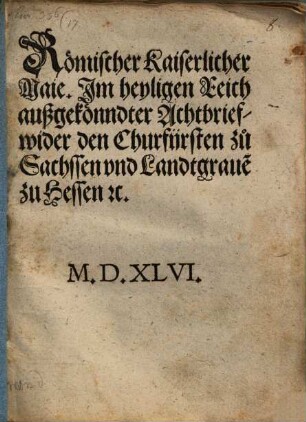 Römischer Kaiserlicher
Maie. Im heyligen Reich
außgekönndter Achtbrief-
wider den Churfürsten zů
Sachssen vnd Landtgrauē
zu Hessen ꝛc.
M. D. XLVI.